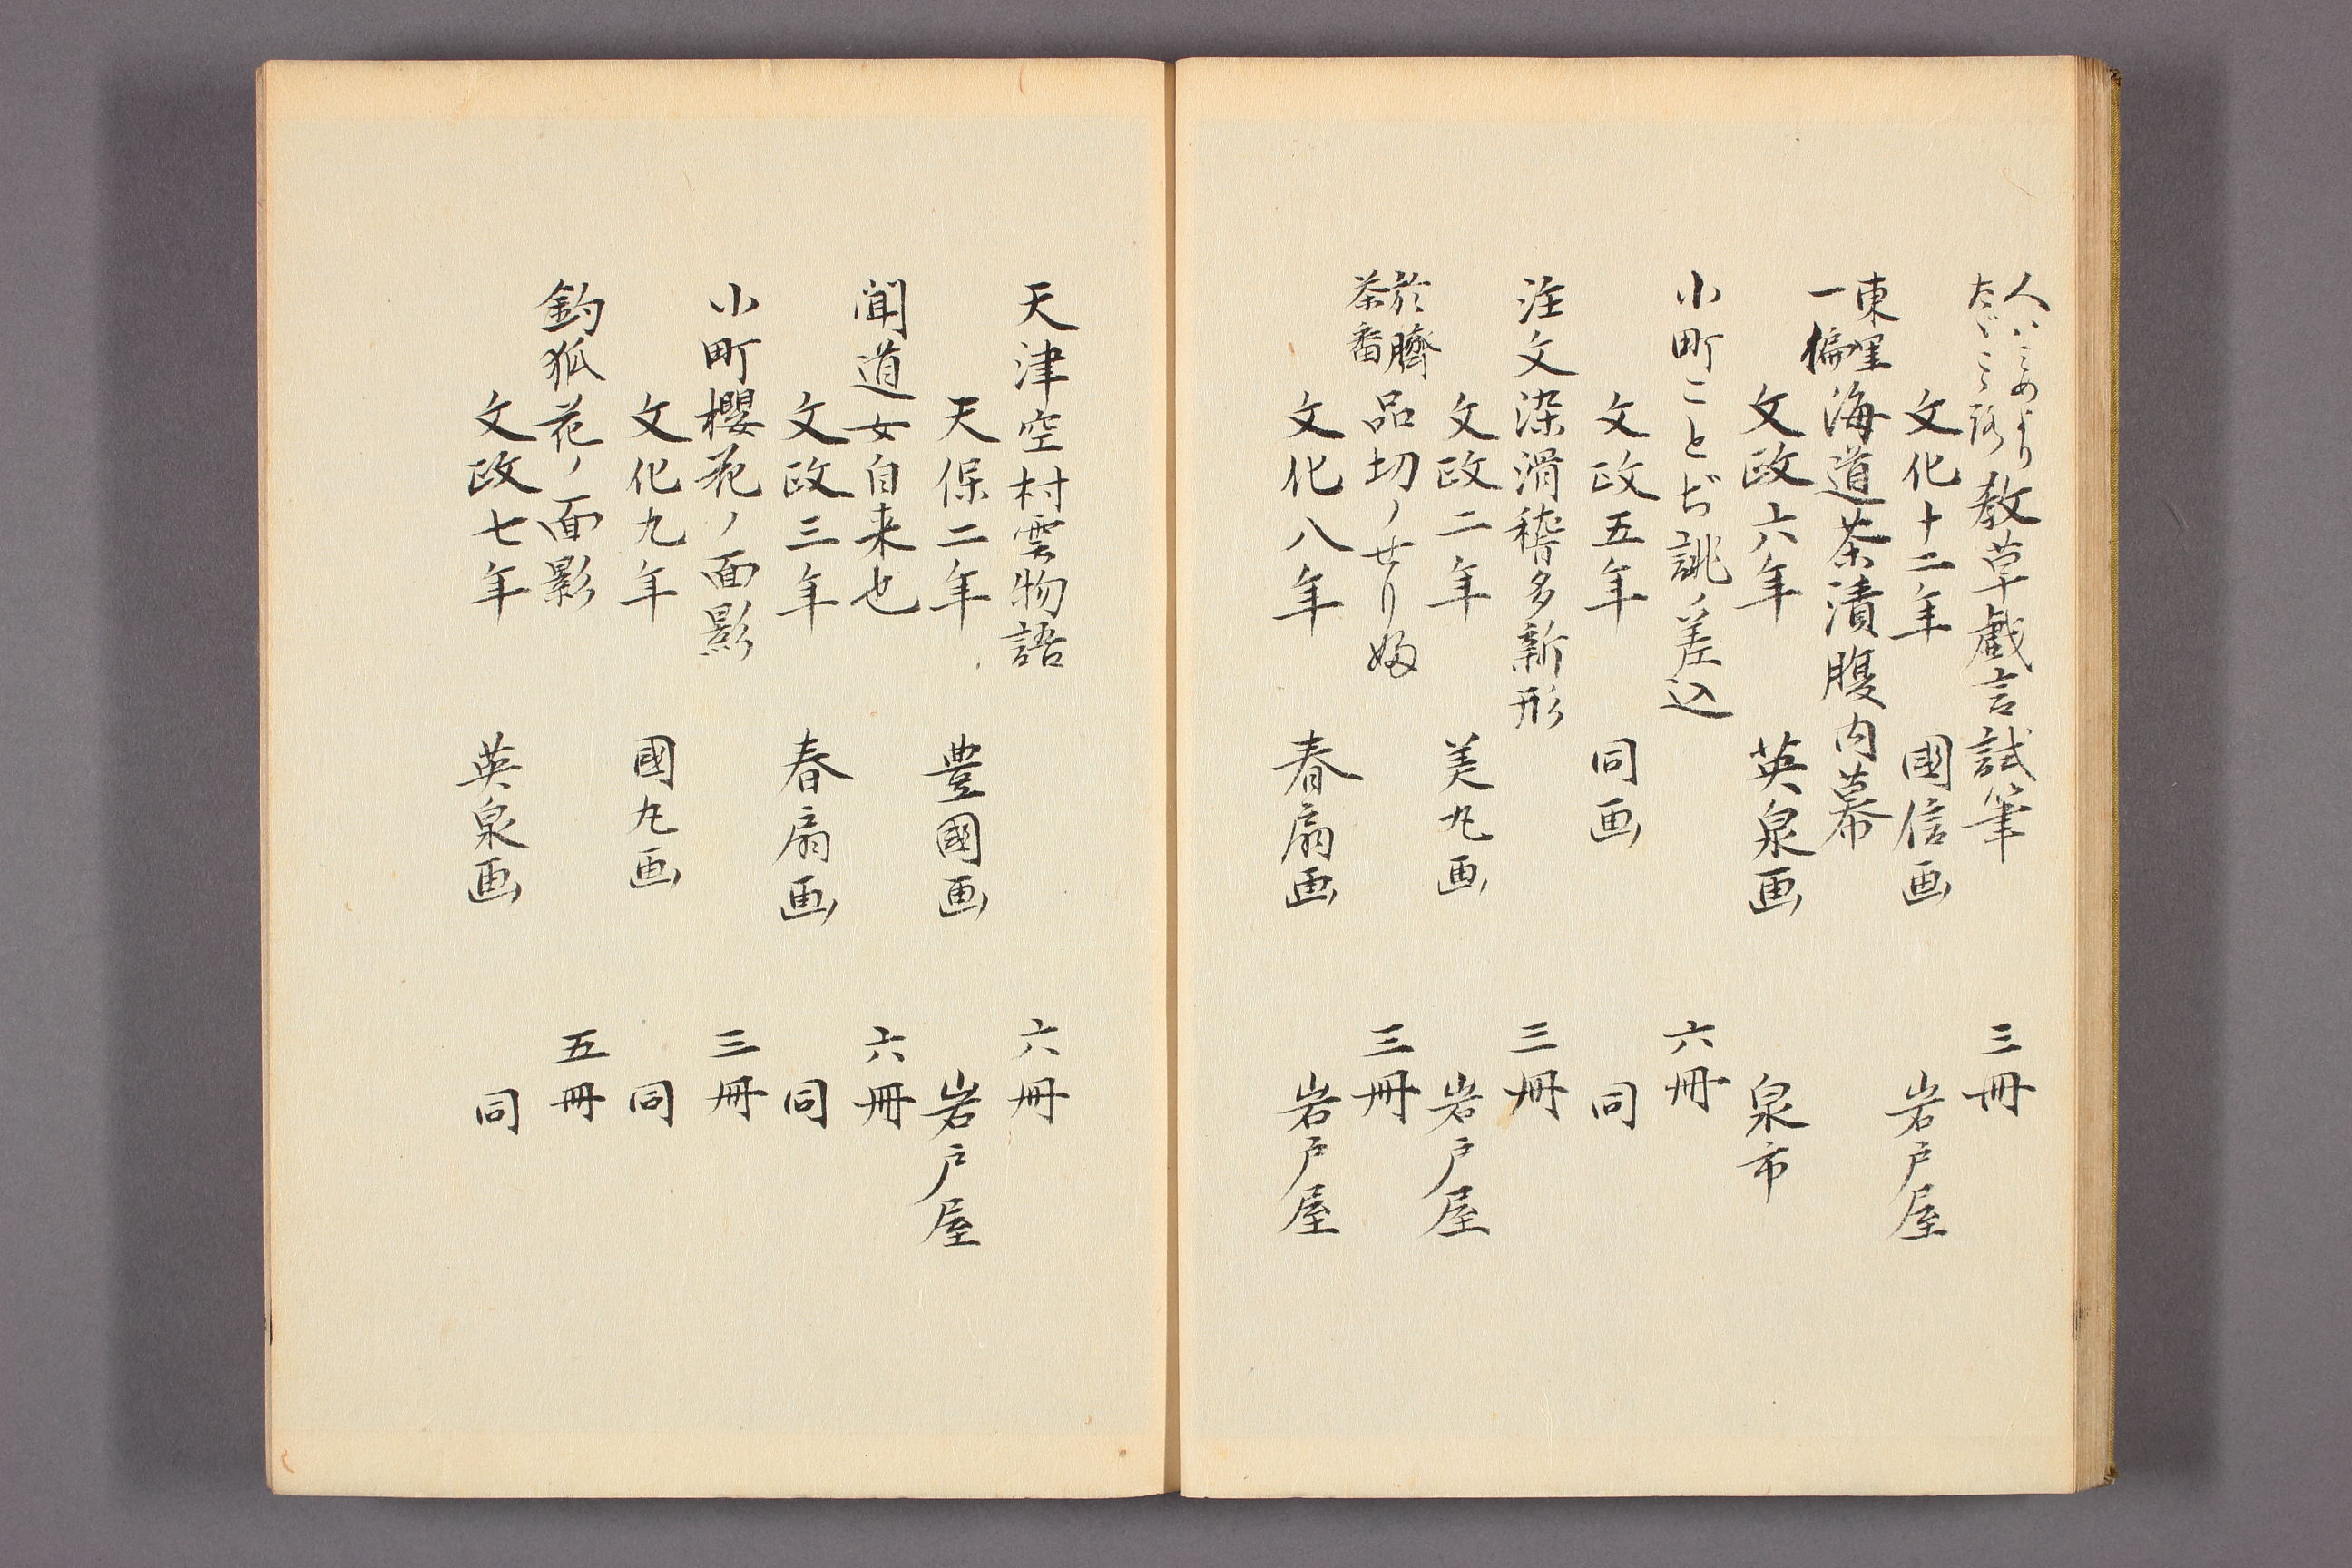 人ハミめより
たゞこゝろ 教草戯言試筆 三冊
文化十二年 國信画 岩戸屋
東埜
一徧 海道茶漬腹内幕
文政六年 英泉画 泉市
小町ことぢ誂ノ差込 六冊
文政五年 同画 同
注文染滑稽多新形 三冊
文政二年 美丸画 岩戸屋
於臍
茶番 品切ノせり婦 三冊
文化八年 春扇画 岩戸屋
天津空村雲物語 六冊
天保二年 豊國画 岩戸屋
聞道女自来也 六冊
文政三年 春扇画 同
小町櫻花ノ面影 三冊
文化九年 國丸画 同
釣狐花ノ面影 五冊
文政七年 英泉画 同